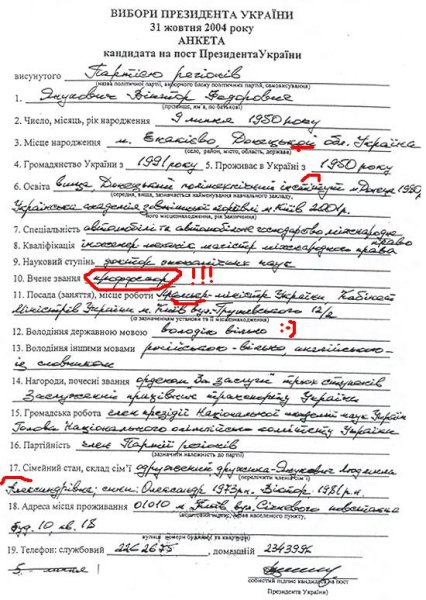 ВИБОРИ ПРЕЗИДЕНТА УКРАЇНИ
31 жовтня 2004 року
АНКЕТА
кандидата на пост Президента України
висунутого Партією регіонів
(назва політичної партії, виборчого блоку політичних партій, самовисування)
1. Янукович Віктор Федорович
(прізвище, ім'я, по батькові)
2. Число, місяць, рік народження 9 липня 1950 року
3. Місце народження м. Єнакієво, Донецької обл. Україна
(село, район, місто, область, держава)
4. Громадянство України з 1991 року 5. Проживає в Україні з 1950 року
6. Освіта вища, Донецький політехнічний інститут м. Донецк 1980,
Українська академія зовнішньої торгівлі м. Київ 2001р.
7. Спеціальність автомобілі та автомобільне господарство міжнародне право
8. Кваліфікація інженер механік магістр міжнародного права
9. Науковий ступінь доктор економічних наук
10. Вчене звання проффесор !!!
11. Посада (заняття), місце роботи Премьєр-міністр України Кабінет
Міністрів України м. Київ вул. Грушевського 12/2
12. Володіння державною мовою володію вільно :-)
13. Володіння іншими мовами російською-вільно, англійською-
із словником
14. Нагороди, почесні звання орденом За заслуги трьох ступенів
Заслужений працівник транспорту України
15. Громадська робота член президії Національної академії наук України
Голова Національного олімпійського комітету України
16. Партійність член Партії регіонів
(зазначити належність до партії)
17. Сімейний стан, склад сім'ї одружений дружина-Янукович Людмила
Александрівна; сини: Олександр 1973р.н. Віктор 1981р.н.
18. Адреса місця проживання 01010 м. Київ вул. Січневого повстання
буд. 10, кв. 18
19. Телефон: службовий 2262675, домашній 2343996
5. липня